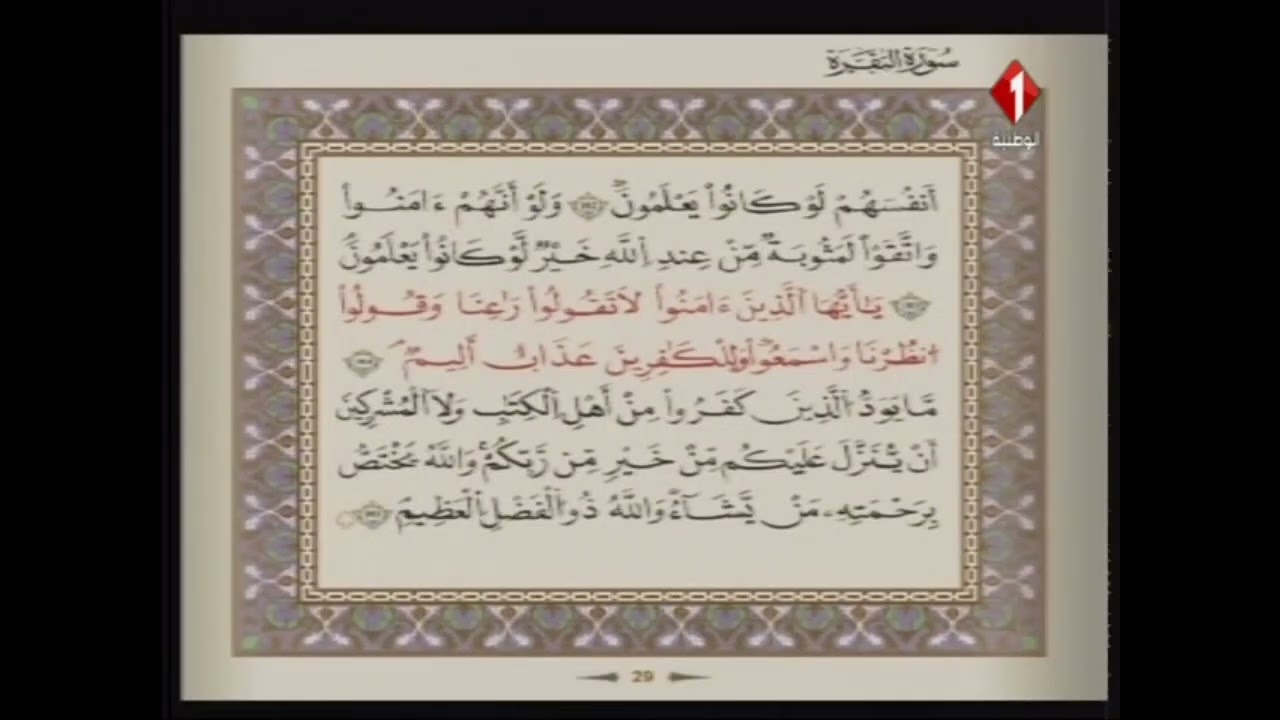 سُورَةُ الْبَقَرَةِ
1
الوطنية
أَنفُسَهُمْ لَوْ كَانُواْ يَعْلَمُونَۖ وَلَوْ أَنَّهُمْ ءَامَنُواْ
وَاتَّقَوْاْ لَمَثُوبَةٌ مِّنْ عِندِ اِ۬للَّهِ خَيْرٌ لَّوْ كَانُواْ يَعْلَمُونَۖ
يَٰأَيُّهَا اَ۬لَّذِينَ ءَامَنُواْ لَا تَقُولُواْ رَٰعِنَا وَقُولُواْ
اُ۟نظُرْنَا وَاسْمَعُواْ وَلِلْكَٰفِرِينَ عَذَابٌ أَلِيمٌۖ
مَّا يَوَدُّ اُ۬لَّذِينَ كَفَرُواْ مِنْ أَهْلِ اِ۬لْكِتَٰبِ وَلَا اَ۬لْمُشْرِكِينَ
أَنْ يُّنَزَّلَ عَلَيْكُم مِّنْ خَيْرٍ مِّن رَّبِّكُمْۖ وَاللَّهُ يَخْتَصُّ
بِرَحْمَتِهِۦ مَنْ يَّشَآءُۖ وَاللَّهُ ذُو اُ۬لْفَضْلِ اِ۬لْعَظِيمِۖ
29